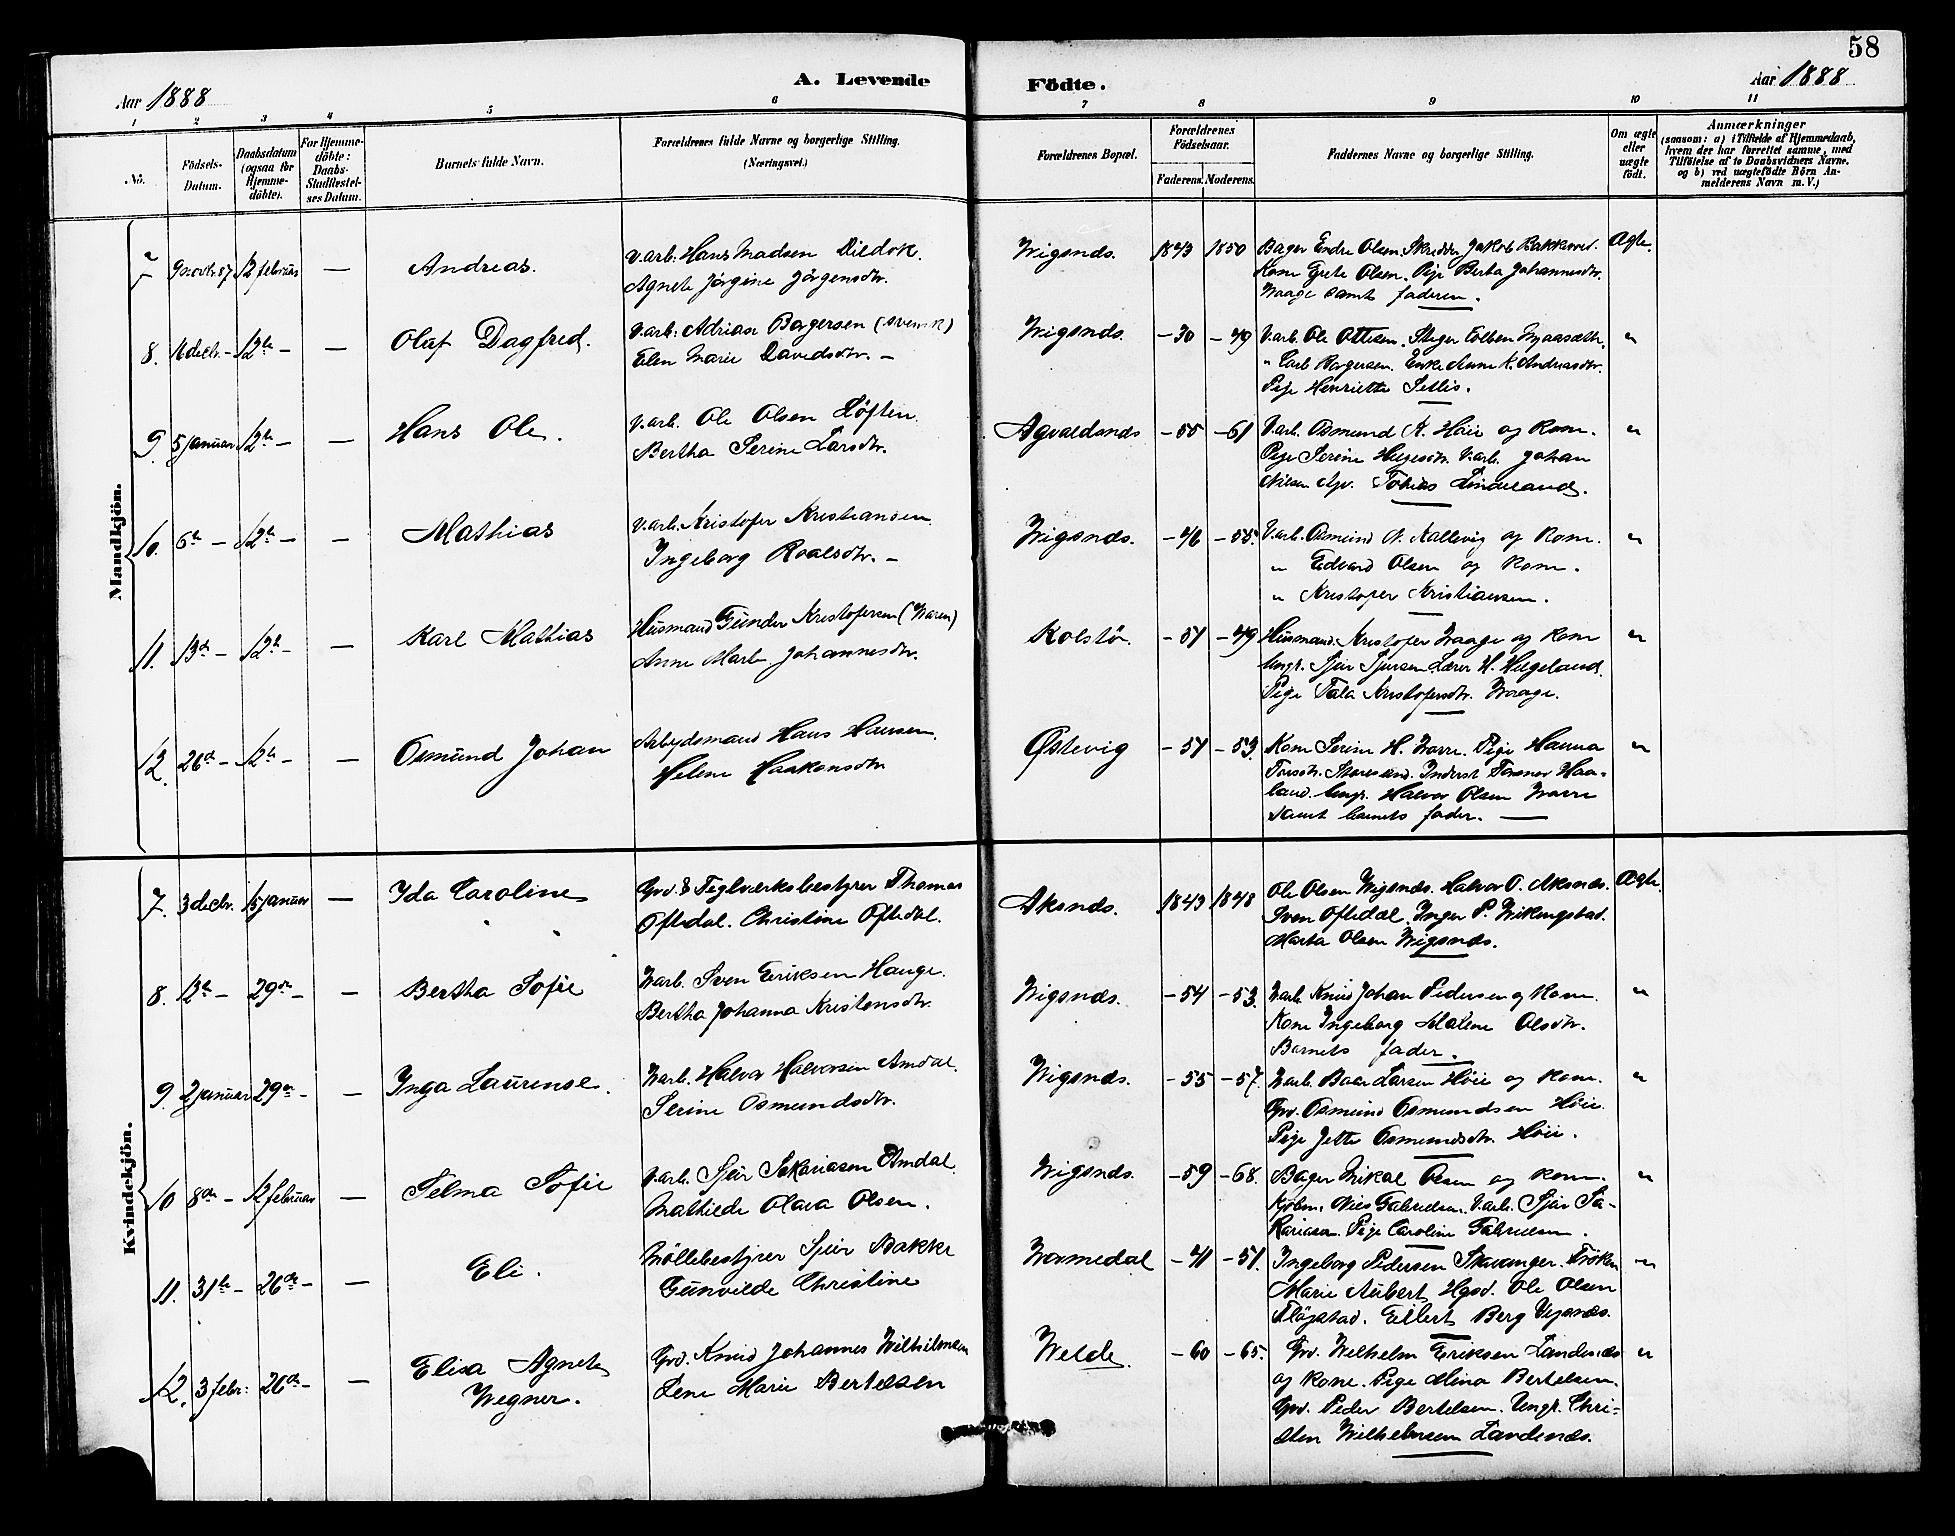 58
Aar 1888
A. Levende
Födte.
Aar 1888
1 2 3 4 5 6 7 8 9 10 11
No.
Födsels-
Datum.
Daabsdatum
(ogsaa for
Hjemme-
döbte).
For Hjemme-
döbte:
Daabs-
Stadfæstel-
ses Datum.
Barnets fulde Navn.
Forældrenes fulde Navne og borgerlige Stilling.
(Næringsvei.)
Forældrenes Bopæl.
Forældrenes
Födselsaar.
Faderens. Moderens.
Faddernes Navne og borgerlige Stilling.
Om ægte
eller
uægte
födt.
Anmærkninger
(saasom: a) i Tilfælde af Hjemmedaab,
hvem der har forrettet samme, med
Tilföielse af to Daabsvidners Navne.
og b) ved uægtefödte Börn An-
melderens Navn m. V.)
Mandkjön.
7 9 novbr. 87 12 februar — Andreas.
V.arb. Hans Madsen
Agnete Jörgine Jörgensdtr.
Wigsnds. 1843 1850
Bager Endre Olsen. Skrædder Jakob
Kone Grete Olsen. Pige Berta Johannesdtr.
Waage samt faderen.
Ægte.
8. 16 decbr. – 12te – — Olaf Dagfred.
V.arb. Adrian Borgersen (svensk)
Elen Marie Davidsdtr. –
Wigsnds. – 30 – 49
V.arb. Ole Ottesen. Stiger Colben
" Carl Borgersen. Enke Anne K. Andreasdtr.
Pige Henriette "
9. 5 januar 12te – — Hans Ole.
V.arb. Ole Olsen Löften
Bertha Serine Larsdtr.
Agvaldsnds – 55 – 61
V.arb. Osmund K. Höie og Kone.
Pige Serine Helgesdtr. V.arb. Johan
Nilsen. Tobias Lindeland.
"
10. 6te – 12te – — Mathias
V.arb. Kristofer Kristiansen.
Ingeborg Roalsdtr. –
Wigsnds. – 46 – 55.
V.arb. Osmund N. Kallevig og Kone.
" Edvard Olsen og Kone.
" Kristofer Kristiansen.
"
11. 13de – 12te – — Karl Mathias
Husmand Gunder Kristofersen (Waren)
Anne Marte Johannesdtr.
Kolstö – 51 – 49
Husmand Kristofer Waage og Kone
Ungk. Sjur Sjursen. Lærer H. Helgeland.
Pige Tala Kristofersdtr. Waage.
"
12. 26de – 12te – — Osmund Johan
Arbejdsmand Hans Hansen.
Helene Haakonsdtr
Østevig – 51 – 53.
Kone Serine H. Wavre. Pige Hanna
Inderst Haa-
land. Ungk. Halvor Olsen Wavre
samt barnets fader. —
"
Kvindekjön.
7. 3 decbr. 15 januar — Ida Caroline
Grd. & Teglværksbestyrer Thomas
Oftedal. Christine Oftedal.
Aksnds. 1843 1848
Ole Olsen Wigsnæs. Halvor O. Aksnæs.
Sven Oftedal. Inger P. Wikingstad.
Marta Olsen Wigsnds.
Ægte.
8. 12te – 29de – — Bertha Sofie
V.arb. Sven Eriksen Hauge.
Bertha Johanna Kristensdtr.
Wigsnds. – 54 – 53.
V.arb. Knud Johan Pedersen og Kone.
Kone Ingeborg Malene Olsdtr.
Barnets fader.
"
9. 2 januar 29de – — Inga Laurense.
V.arb. Halvor Halvorsen Amdal.
Serine Osmundsdtr.
Wigsnds. – 55 – 57.
V.arb. Baar Larsen Höie og Kone.
Grd. Osmund Osmundsen Höie.
Pige Jette Osmundsdtr. Höie.
"
10 8de – 12 februar — Selma Sofie
V.arb. Sjur Sakariasen Amdal.
Mathilde Olava Olsen.
Wigsnds. – 59 – 68.
Bager Mikal Olsen og Kone.
Kjöbm. Nils Gabrielsen. V.arb. Sjur Sa-
kariasen. Pige Caroline Gabrielsen.
"
11. 31te – 26de – — Eli.
Möllebestyrer Sjur Bakke
Gunvilde Christine
Wormedal – 41 – 51.
Ingeborg Pedersen Stavanger. Fröken
Marie Aubert. Ole Olsen
Eilert Berg Vigsnæs.
"
12. 3 febr: 26de – — Elisa Agnete
Wegner.
Grd. Knud Johannes Wilhelmsen
Lene Marie Bertelsen
Welde. – 60 – 65.
Grd. Wilhelm Eriksen Landenæs
og Kone. Pige Mina Bertelsen.
Grd. Peder Bertelsen. Ungk. Chri-
sten Wilhelmsen Landenæs.
"